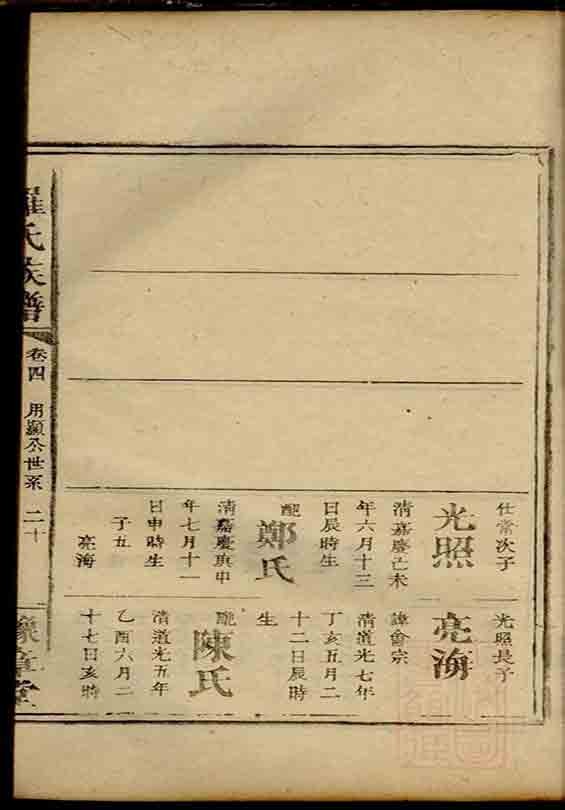 仕常次子
光照
清嘉慶己未
年六月十三
日辰時生
配
鄭氏
清嘉慶庚申
年七月十一
日申時生
子五
亮海
光照長子
亮海
諱會宗
清道光七年
丁亥五月二
十二日辰時
生
配
陳氏
清道光五年
乙酉六月二
十七日亥時
羅氏族譜
卷四
用顯公世系
二十
豫章堂